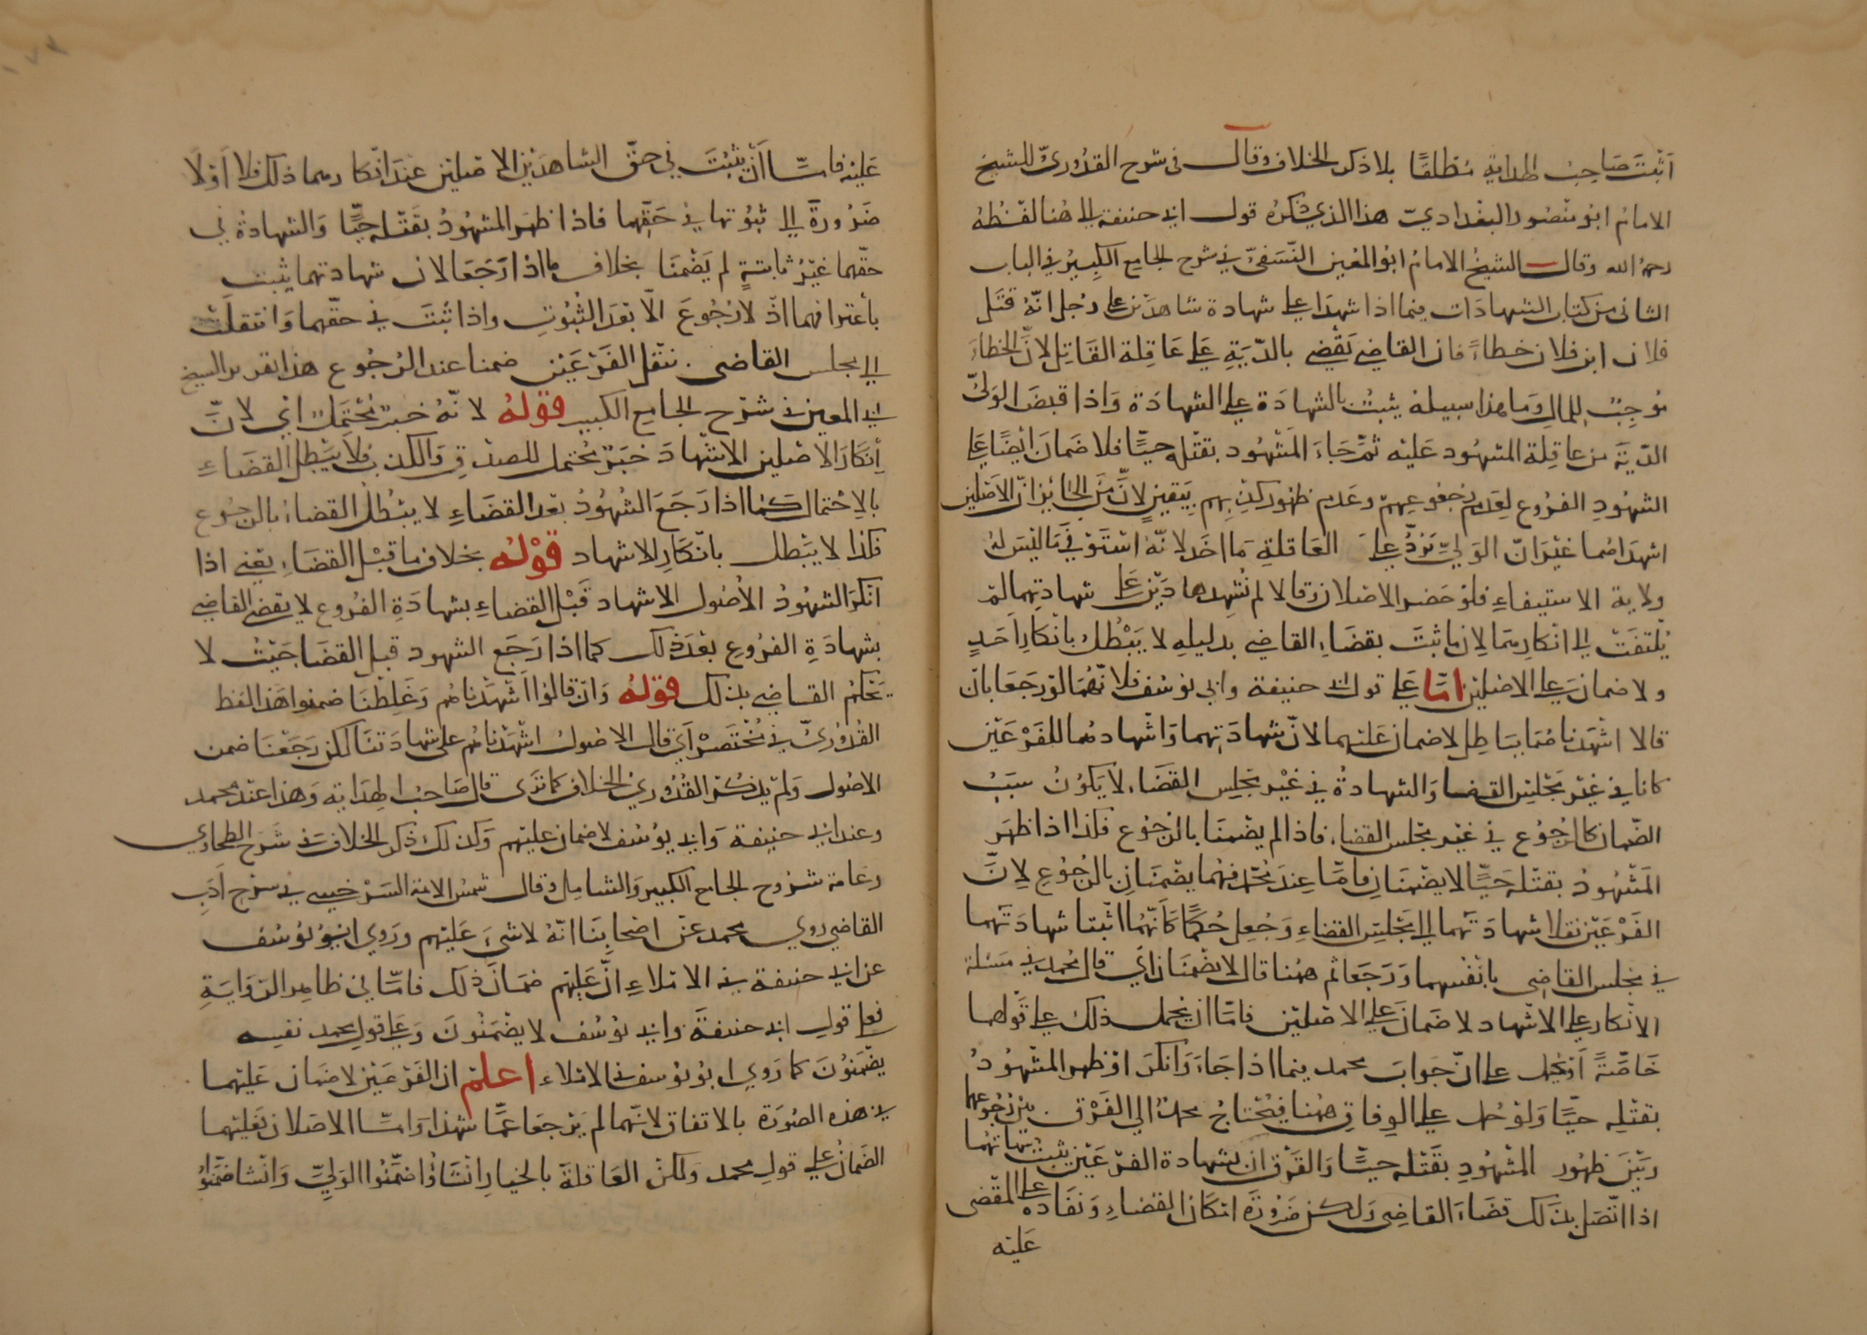 اَثبتَ صَاحبُ الهدايةِ مُطلقًا بلا ذكر الخلاف وقال في شرح القدُوريّ الشيخ
الامامُ ابو منصُور البغداديّ هذا الذي ذكرهُ قول ابي حنيفة الى هُنا لفظهُ
رحمهُ الله وقال الشيخُ الامامُ ابو المُعِين النّسَفىّ في شرح الجامع الكَبِيرُ في الباب
الثاني من كتاب الشهادَات فيما اذا شهدَا على شهادة شاهدَين على رجل انّهُ قتَل
فلان ابن فلان خطاءً فان القاضي يَقْضي بالدّيَةِ عَلى عَاقِلة القَاتِل لانّ الخطاءَ
مُوجِبٌ للمال وَما هذا سبيله يثبتُ بالشهادَة على الشهادَة وَاذا قبضَ الوَلىّ
الدّيَةَ من عاقِلة المشهُود عَليْه ثمّ جَاءَ المَشهُود بقتْله حيًّا فلا ضمَان ايضًا على
الشهُودِ الفرُوع لِعَدم رجُوعِهِمْ وعَدم ظهور كذبهم بِيَقينٍ لانّ مَنَ الجائز انّ الاصْلين
اشهدَاهُما غيْرَ انّ الوَلىّ يَرُدُّ عَلى العَاقلةِ مَا اخَذ لانّهُ اسْتَوفي مَا ليْسَ لهُ
ولاية الاستيفاءِ فلوْ حَضر الاصْلان وقالا لم نُشهِدهما دَيْن عَلى شهادتِهما لمْ
يُلتفَتْ الى انْكارِهمَا لان ما ثبتَ بقضاءِ القاضي بدليلهِ لا يَبْطُل بانكارِ اَحَدٍ
ولا ضمانَ عَلى الاصْلين امّا عَلى قول ابي حنيفة وابي يوسُف فلانّهُمَا لوْ رَجَعَا بان
قالا اشْهَدْناهُمَا بباطِلٍ لا ضمان عَليهما لانّ شهادَتهما وَاشهادهُما للفَرْعَيْن
كانا في غيْر مَجْلسِ القضا وَالشهادةُ في غيْر مَجْلِس القضَاءِ لا يَكُونُ سبَبُ
الضّمان كالرجُوع في غيْر مجْلس القضاءِ فاذا لم يضْمنَا بالرجُوع فكذا اذا ظهَر
المَشْهُودُ بقتْله حَيًّا لا يضْمنَان وَامّا عِندَ مُحمّد فهُما يضْمنَانِ بالرجُوعِ لانّ
الفَرْعَيْن نقلا شهادَتَهُما الى مَجْلِسِ القضاءِ وَجُعِل حُكمًا كَانّهُما اثبَتا شهادَتَهما
في مجلس القاضِي بانفُسِهما وَرَجَعَا ثم هٰهُنا قال لا يضْمنَان اَي قال مُحمد في مَسئلة
الانكار على الاشهاد لا ضَمانَ عَلى الاصْليْن فامّا انْ يُحمل ذلك على قولهما
خَاصّةً اَوْ يُحمل على انّ جَوابَ محمد فيما اذا جَاءَ وَانكرَ اوْ ظهر المشْهُودُ
بقتْلهِ حيًّا وَلوْ حُمل على الوِفاقِ هٰهُنا فيُحتاجُ محمدُ الى الفَرْق بَيْن رجُوعهما
وبَيْنَ ظهُور المشْهُودِ بقَتْله حيًّا وَالفَرْق ان بشهادة الفَرْعَيْن يثبتُ شهادَتهُما
اذا اتّصَل بذلك قضَاءُ القاضِي وَلٰكن ضَرُورَةَ امكَان القضاءِ وَنفَاذهِ على المقْضى
عَليْه
عَليْه فامّا اَنْ يثبُتَ في حقّ الشاهدَيْن الاصْليْن عندَ انكارهما ذلك فلا اَوْ لا
ضَرُورةَ الى ثبُوتها في حَقّهما فاذا ظهَر المشهُودُ بقَتْله حيًّا وَالشهادةُ في
حقّهما غيْرُ ثابتةٍ لم يَضْمنَا بخلاف ما اذا رَجَعَا لان شهادتهما يثبت
باعترافهما اذْ لا رُجُوعَ الّا بعْدَ الثُبُوتِ واذا ثبَتَ في حقّهما وَانتقلَتْ
الى مجلس القاضى بنقْل الفَرْعَيْن ضمنا عند الرُجُوع هذا تقرير الشيخ
ابي المعين في شرْح الجامع الكبير قوْلهُ لانّهُ خبَرٌ مُحْتَمَل اَي لانّ
اِنكَارَ الاصْلين الاشهادَ خبَرٌ مُحْتمل للصِدْقِ وَالكذب فلا يَبْطل القضَاءِ
بالاحْتمال كمَا اذا رَجَعَ الشُهُودُ بَعْدَ القضَاءِ لا يبْطُل القضاءُ بالرجُوع
فكذا لا يَبْطل بانكَارِ الاشهاد قوْلهُ بخلاف ما قبْل القضَاءِ يعْني اذا
انكرَ الشهُودُ الاُصُول الاشهاد قبْل القضاءِ بشهادَةِ الفُروع لا يقضي القاضي
بشهادَةِ الفرُوعِ بعْدَ ذلك كما اذا رَجَع الشهود قبل القضَا حَيْثُ لا
يَحْكُمُ القاضِي بذلك قوْلهُ وَانْ قالوُا اَشهَدْناهُم وَغلِطنَا ضمنوا هَذا لفظ
القُدُوريّ في مُخْتَصَره اَي قال الاصُولُ اشهَدْناهُم على شهادَتنَا لكن رَجَعْنَا ضمن
الاصُول وَلمْ يذكُر القُدُوري الخلاف كما تَرَى قال صَاحبُ الهدَاية وَهذا عندَ محمد
وعند ابي حنيفة وَابي يوسُف لا ضمان عليْهم وَكذلك ذكر الخلافَ في شرْح الطحاوي
وعامة شرُوح الجامع الكبير وَالشامِل وقال شمسُ الائمة السّرْخسِي في شرح اَدَبِ
القاضي روي محمد عَنْ اصْحابِنَا انّهُ لا شيْءَ عَليْهم ورَوي ابُو يُوسُف
عن ابي حنيفة في الامْلاءِ انّ عَليْهم ضمَانَ ذلك فامّا في ظاهِر الرّوَايَةِ
فعلى قول ابي حنيفَة وابي يُوسُف لا يضْمَنُونَ وَعَلى قول محمد نفسِه
يضْمَنُونَ كما رَوي ابُو يُوسف في الامْلاء اعلمْ ان الفَرْعَيْن لا ضمان عَليْهما
في هذه الصُورَة بالاتفاق لانّهما لم يَرْجعَا عَمّا شهدَا وَامّا الاصْلان فعَليْهما
الضَمانُ على قول محمد وَلٰكنْ العَاقلة بالخيارِ انْ شَاؤُا ضمَّنُوا الوَليّ وَانْ شا ضمّنُوا